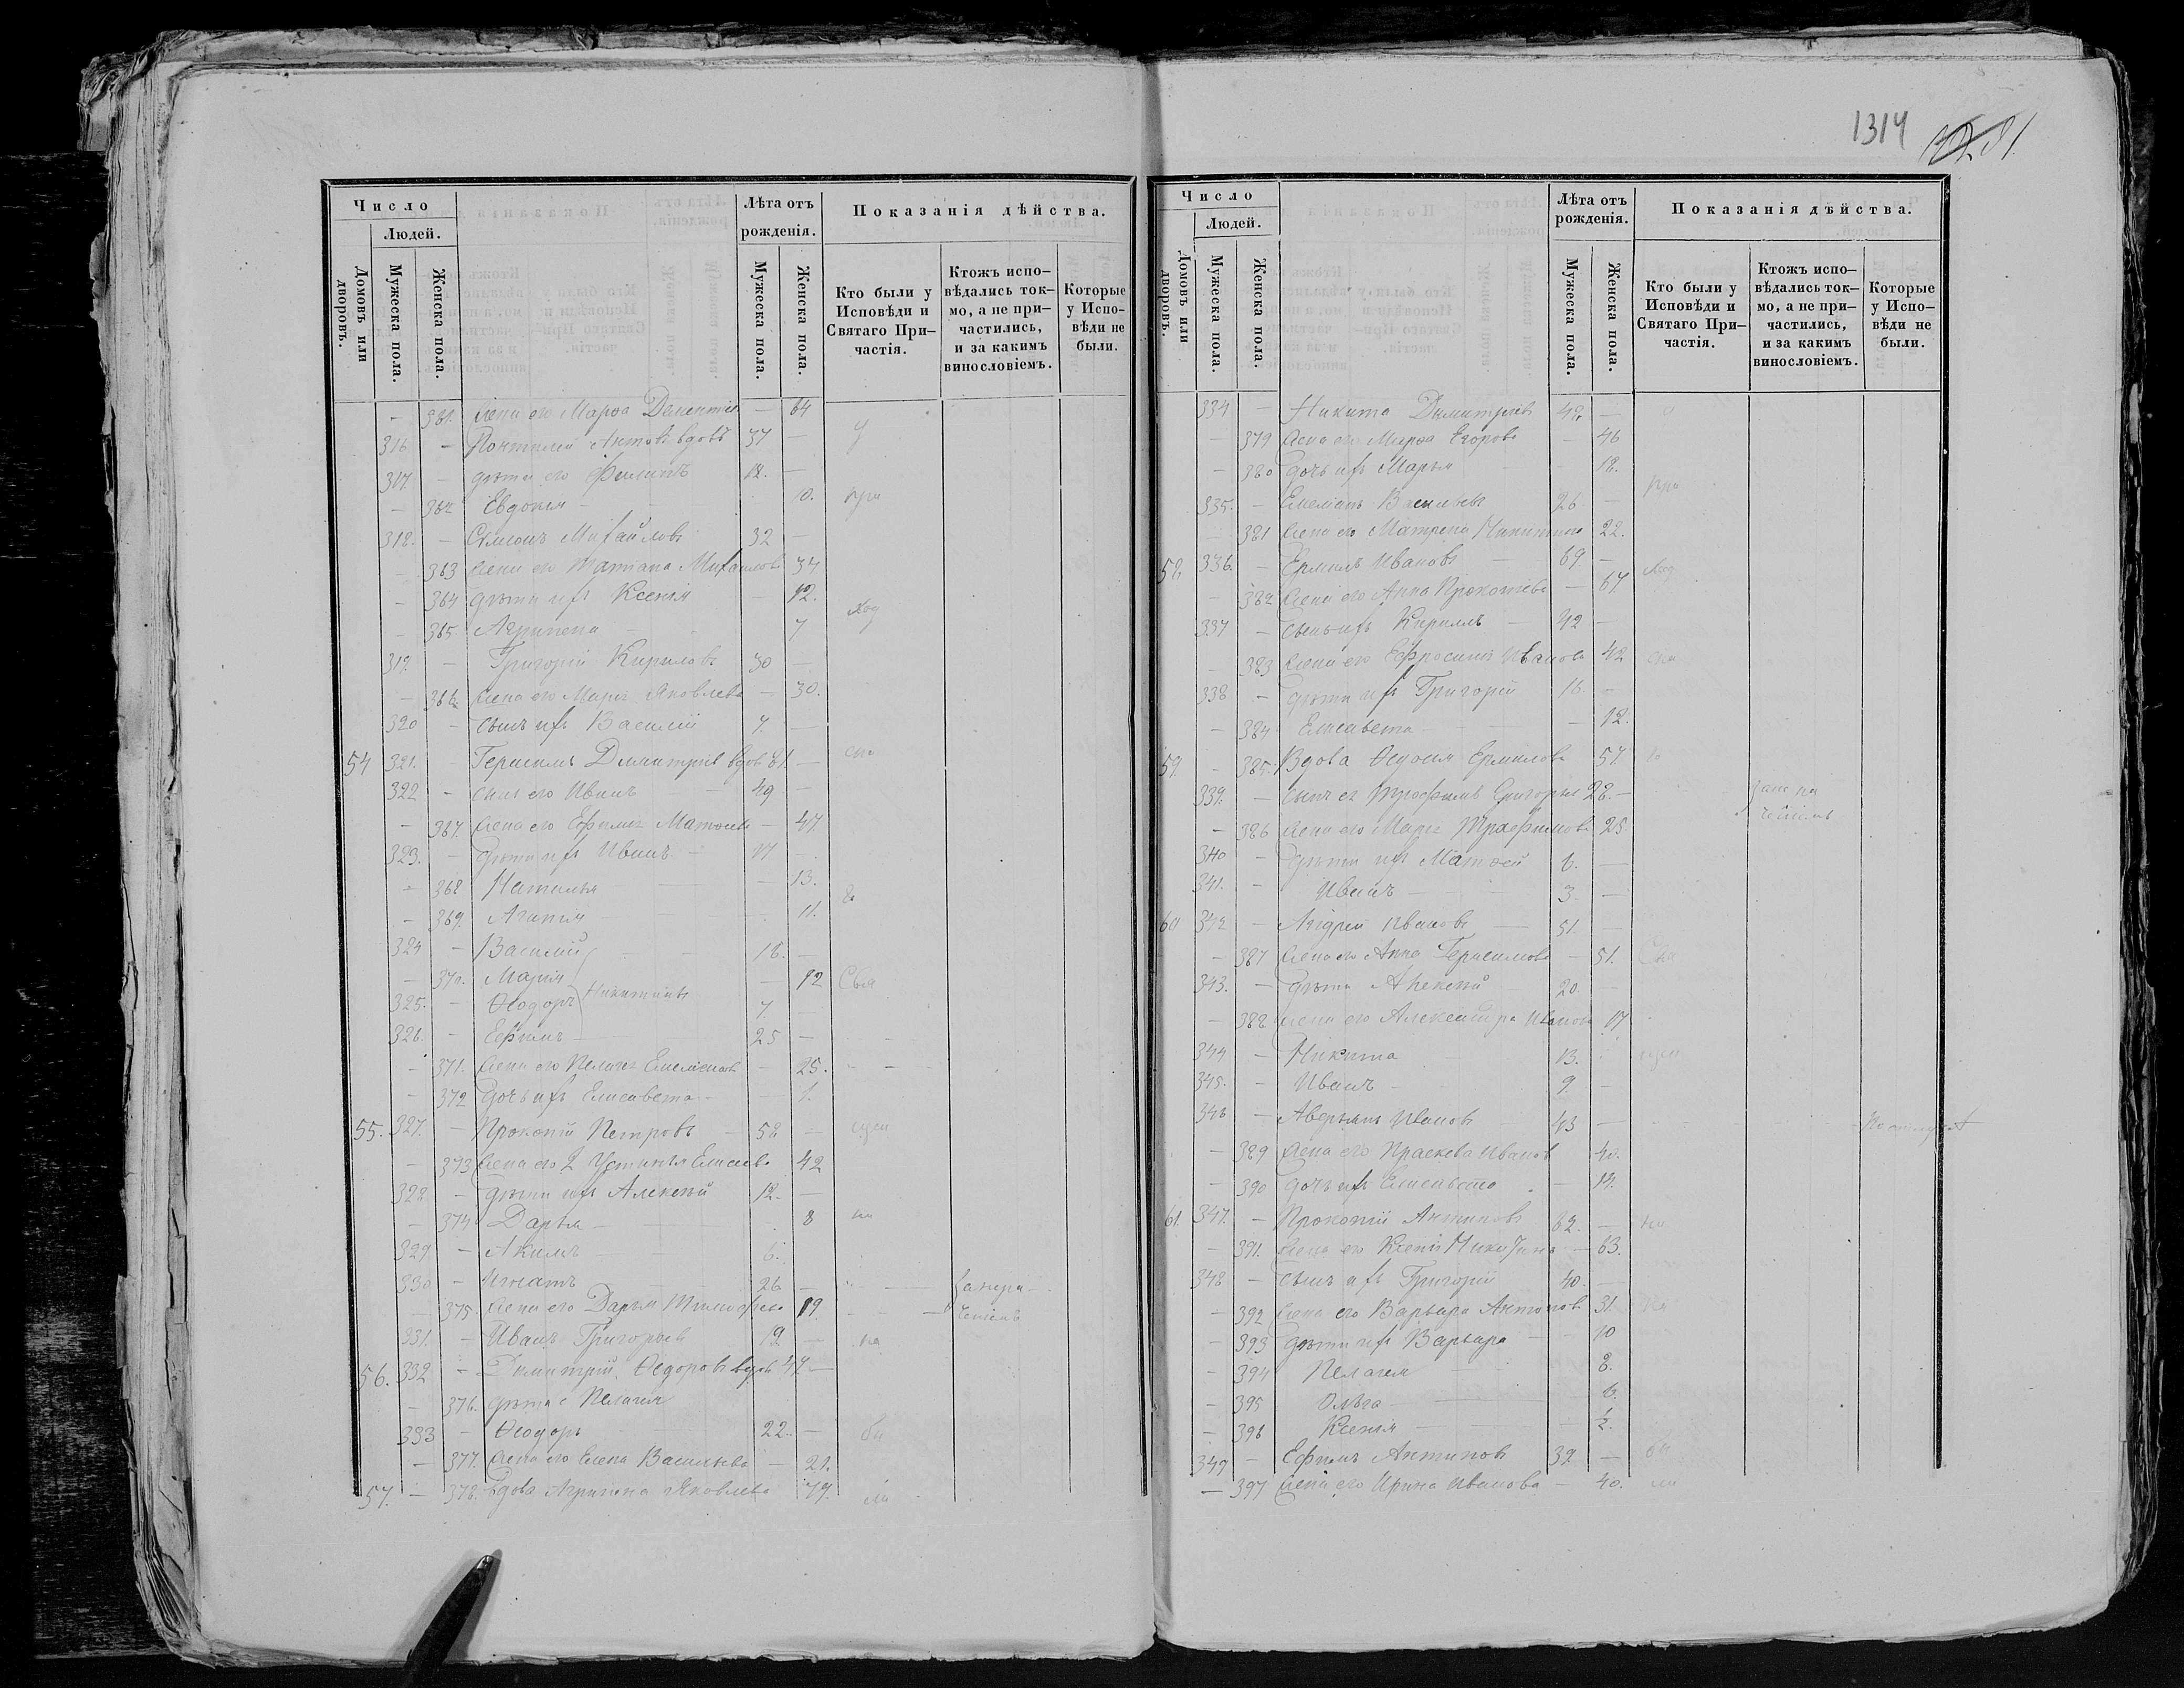 1314
Число
Людей.
Домовъ или дворовъ.
Мужеска пола.
Женска пола.
Лѣта отъ рожденія.
Мужеска пола.
Женска пола.
Показанія дѣйства.
Кто были у Исповѣди и Святаго При-частія.
Ктожъ испо-вѣдались ток-мо, а не при-частились, и за какимъ винословіемъ.
Которые у Испо-вѣди не были.
— 361. жена его Марѳа Дементіев — 64
316 — Понтилей Антовъ вдовъ 37 —
317 — дѣти его Филипъ 18. —
— 362 Евдокия — 10. при
318. — Симеонъ Михайловъ 32 —
— 363 жена его Татиана Михаилова 34
— 364 дѣти ихъ Ксенія — 12.
— 365 Агрипена — 7 ход
319. — Григорій Кириловъ 30 —
— 366. жена его Марія Яковлева — 30.
320 — сынъ ихъ Василій 7. —
54 321. — Герасимъ Димитриев вдов 81. —
322 — сынъ его Иванъ — 49 —
— 367. жена его Ефимія Матвеева — 47.
323. — дѣти ихъ Иванъ — 17 —
— 368 Наталья — 13.
— 369. Агапія — 11.
324 — Василий 18. —
— 370. Марія — 12 Свя
325. — Ѳеодоръ Никитины 7 —
326. — Ефимъ — 25 —
— 371. жена его Пелагея Емелянова — 25.
— 372 дочь ихъ Елисавета — 1.
55. 327. — Прокопій Петровъ — 58 —
— 373 жена его 2 Устинья Елисеева 42
328 — дѣти ихъ Алексѣй 12. —
— 374 Дарья — 8 на
329 — Акимъ — 6.
330 — Игнатъ 26 —
— 375 жена его Дарья Тимофеева 19.
331. — Иванъ Григорьев 19 — на
56. 332 — Димитрій Ѳедоровъ вдов 47 —
— 376. дѣти е Пелагея
333 — Ѳеодоръ 22. — бы
— 377. жена его Елена Васильева — 21.
57. — 378. Вдова Агрипена Яковлева 79. ли
Число
Людей.
Домовъ или дворовъ.
Мужеска пола.
Женска пола.
Лѣта отъ рожденія.
Мужеска пола.
Женска пола.
Показанія дѣйства.
Кто были у Исповѣди и Святаго При-частія.
Ктожъ испо-вѣдались ток-мо, а не при-частились, и за какимъ винословіемъ.
Которые у Испо-вѣди не были.
334 — Никита Димитріевъ 48 —
— 379 жена его Марѳа Егорова — 46
— 380 дочь ихъ Марья — 18.
335. — Емеліанъ Васильевъ 26 — при
— 381 жена его Матрена Никитина 22.
58. 336. — Ермилъ Ивановъ 69. —
— 382 жена его Анна Прокопіева — 67. ход
337 — сынъ ихъ Кириллъ — 42 —
— 383 жена его Ефросинія Иванова 42
338 — дѣти ихъ Григорій 16. —
— 384 Елисавета — 12.
59. — 385. Вдова Ѳедосія Ермилова 57.
339. — сынъ ея Трофимъ Григорьев 28. —
— 386 жена его Марія Трофимова 25
340 — дѣти ихъ Матвей 6. —
341. — Иванъ — 3. —
60 342 — Андрей Ивановъ — 51 —
— 387 жена его Анна Герасимова — 51.
343. — дѣти Алексѣй 20. —
— 388. жена его Александра Иванова 17
344 — Никита 13.
345. — Иванъ — 9. —
346 — Аверьянъ Иванов 43 —
— 389 жена его Праскева Иванов 40.
— 390 дочь ихъ Елисавета — 14.
61. 347. — Прокопій Антиповъ 62. — на
— 391. жена его Ксенія Никитина — 63.
348 — сынъ ихъ Григорій 40. —
— 392 жена его Варвара Антонов 31.
— 393 дѣти ихъ Варвара — 10
— 394 Пелагея 8.
— 395 Ольга — 6.
— 396 Ксенія —
349 — Ефимъ Антипов 39 — бы
— 397 жена его Ирина Иванова — 40. ли